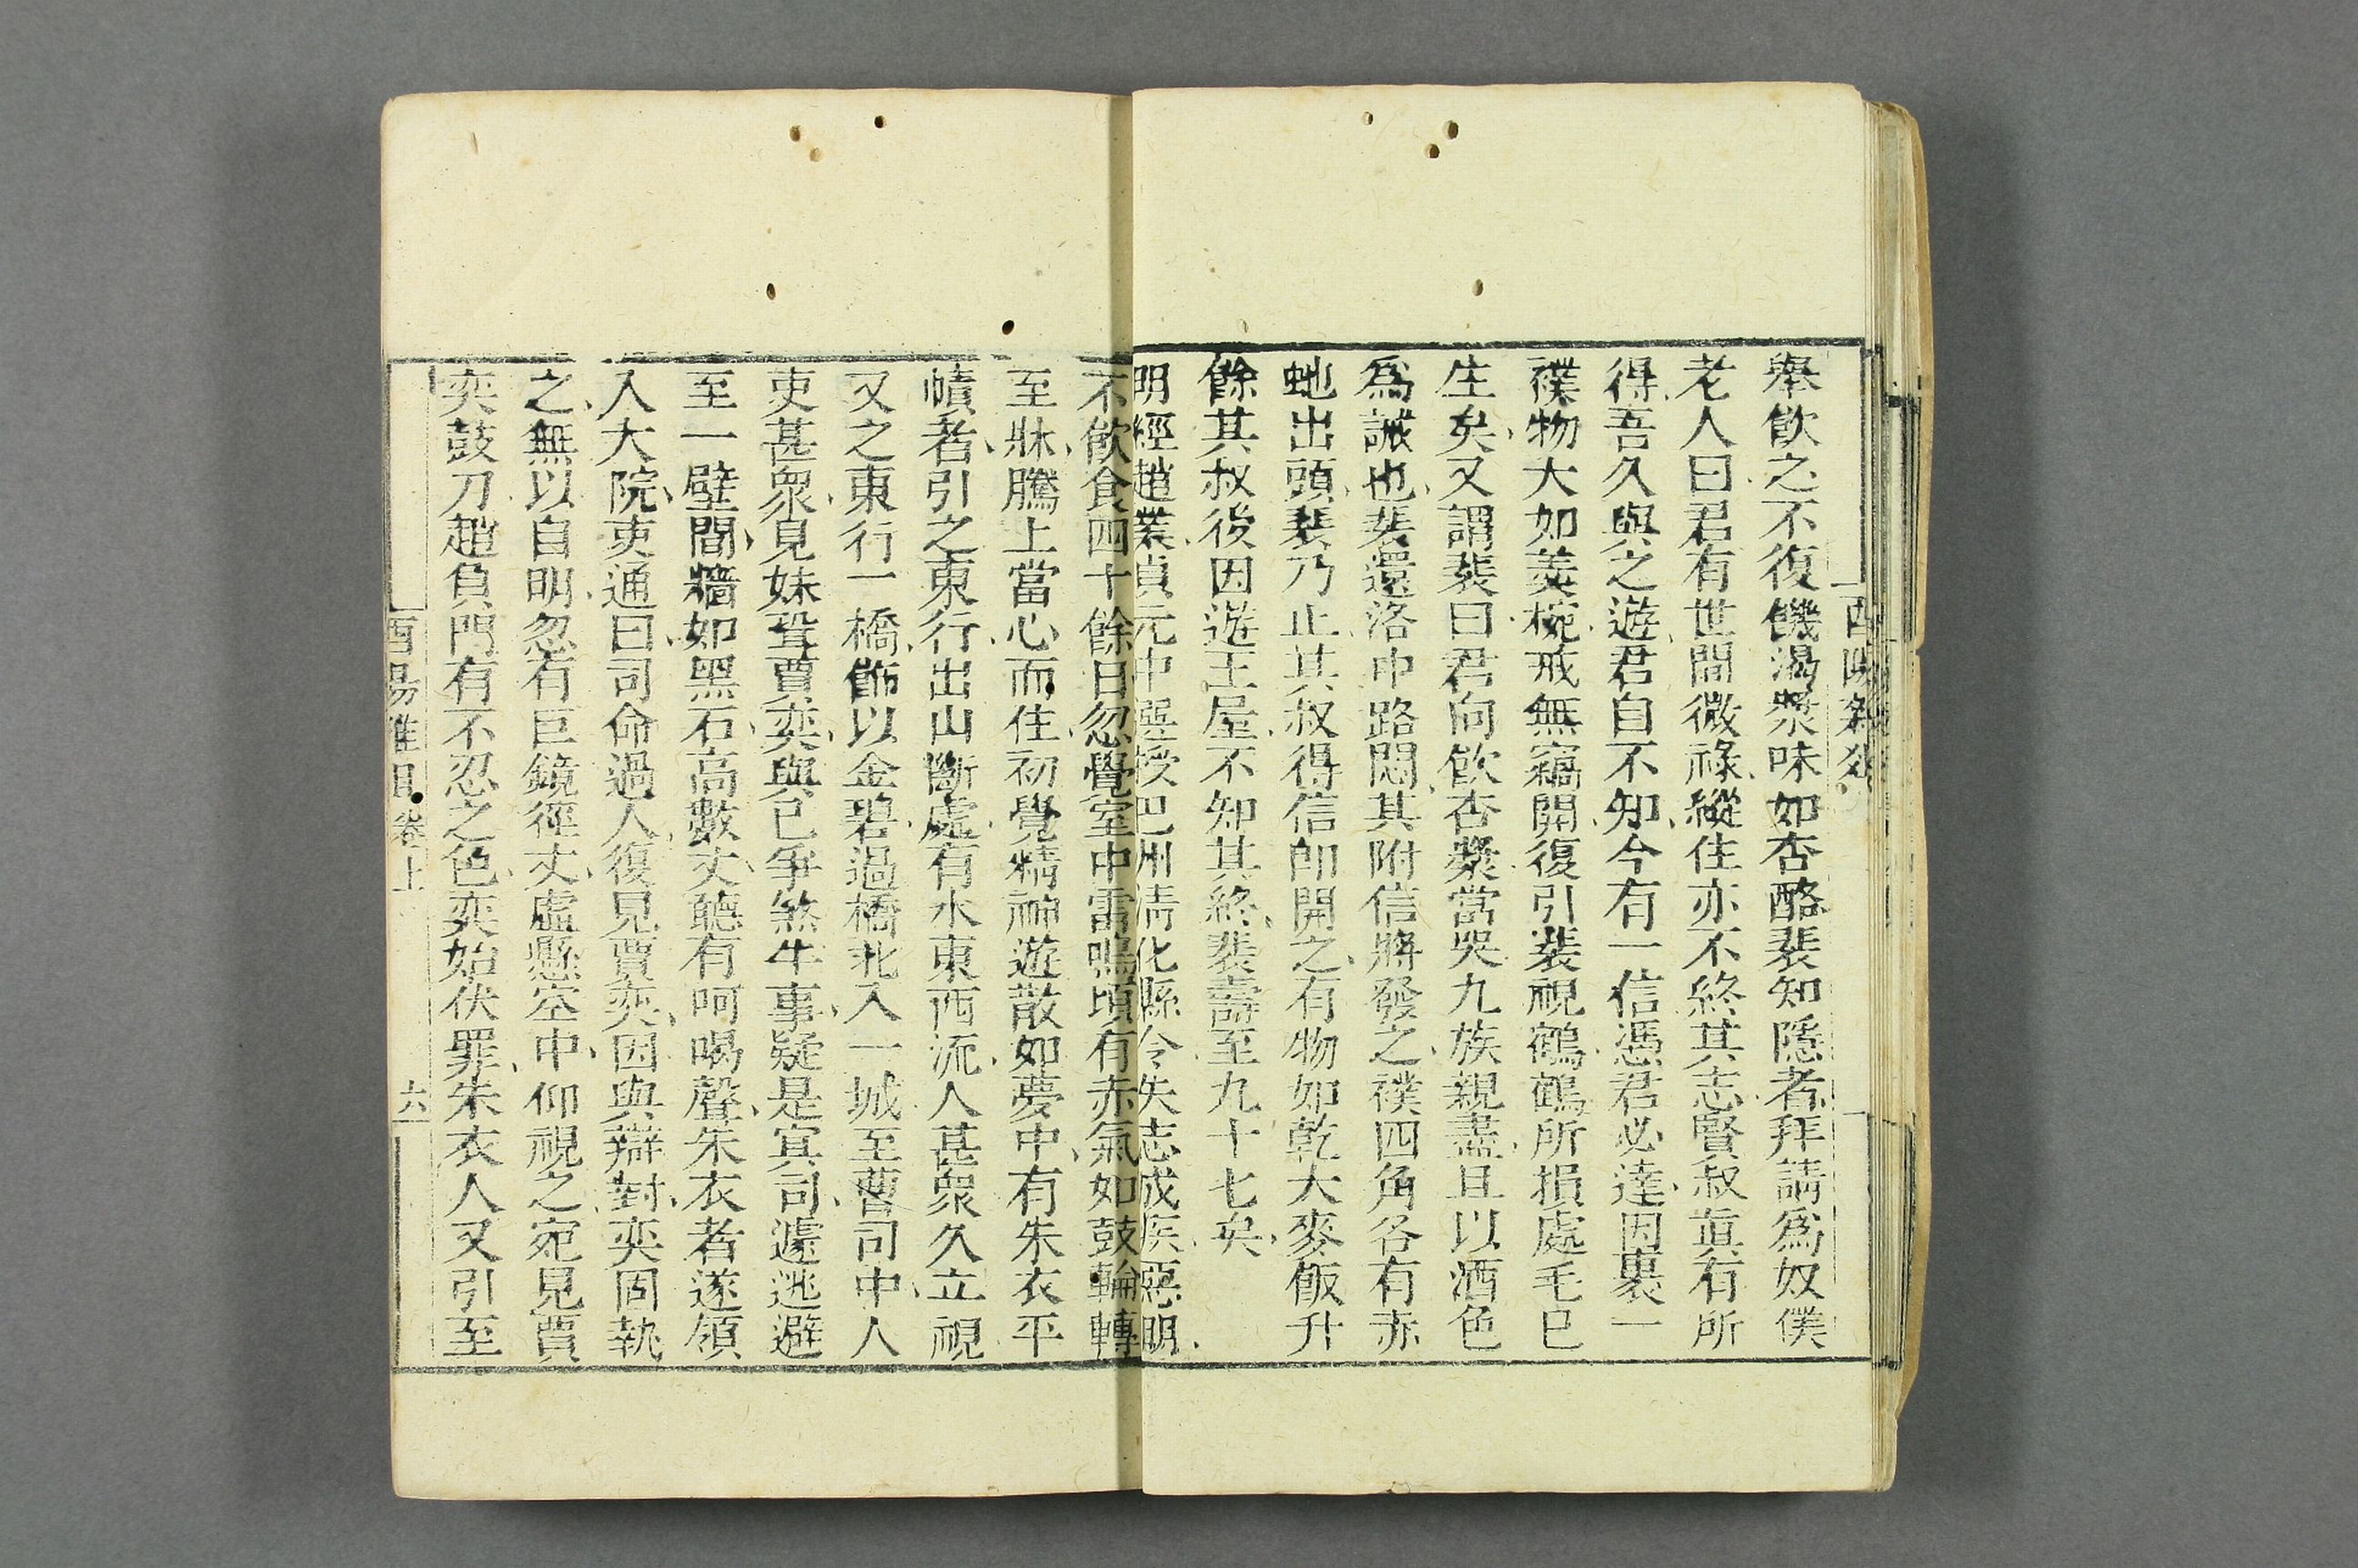 酉陽雜俎
舉飲之不復饑渴漿味如杏酪裴知隱者拜請為奴僕
老人曰君有世間微祿縱住亦不終其志賢叔真有所
得吾久與之遊君自不知今有一信憑君必達因裹一
襆物大如羹椀戒無竊開復引裴視鶴鶴所損處毛已
生矣又謂裴曰君向飲杏漿當哭九族親盡且以酒色
為誡也裴還洛中路悶其附信將發之襆四角各有赤
虵出頭裴乃止其叔得信即開之有物如乾大麥飯升
餘其叔後因遊王屋不知其終裴壽至九十七矣
明經趙業貞元中選授巴州清化縣令失志成疾惡明
不飲食四十餘日忽覺室中雷鳴頃有赤氣如鼓輪轉
至牀騰上當心而住初覺精神遊散如夢中有朱衣平
幘者引之東行出山斷處有水東西流人甚眾久立視
又之東行一橋飾以金碧過橋北入一城至曹司中人
吏甚眾見妹壻賈奕與已爭煞牛事疑是冥司遽逃避
至一壁間牆如黑石高數丈聽有呵喝聲朱衣者遂領
入大院吏通曰司命過人復見賈奕因與辯對奕固執
之無以自明忽有巨鏡徑丈虛懸空中仰視之宛見賈
奕鼓刀趙負門有不忍之色奕始伏罪朱衣人又引至
酉陽雜俎 卷上 六